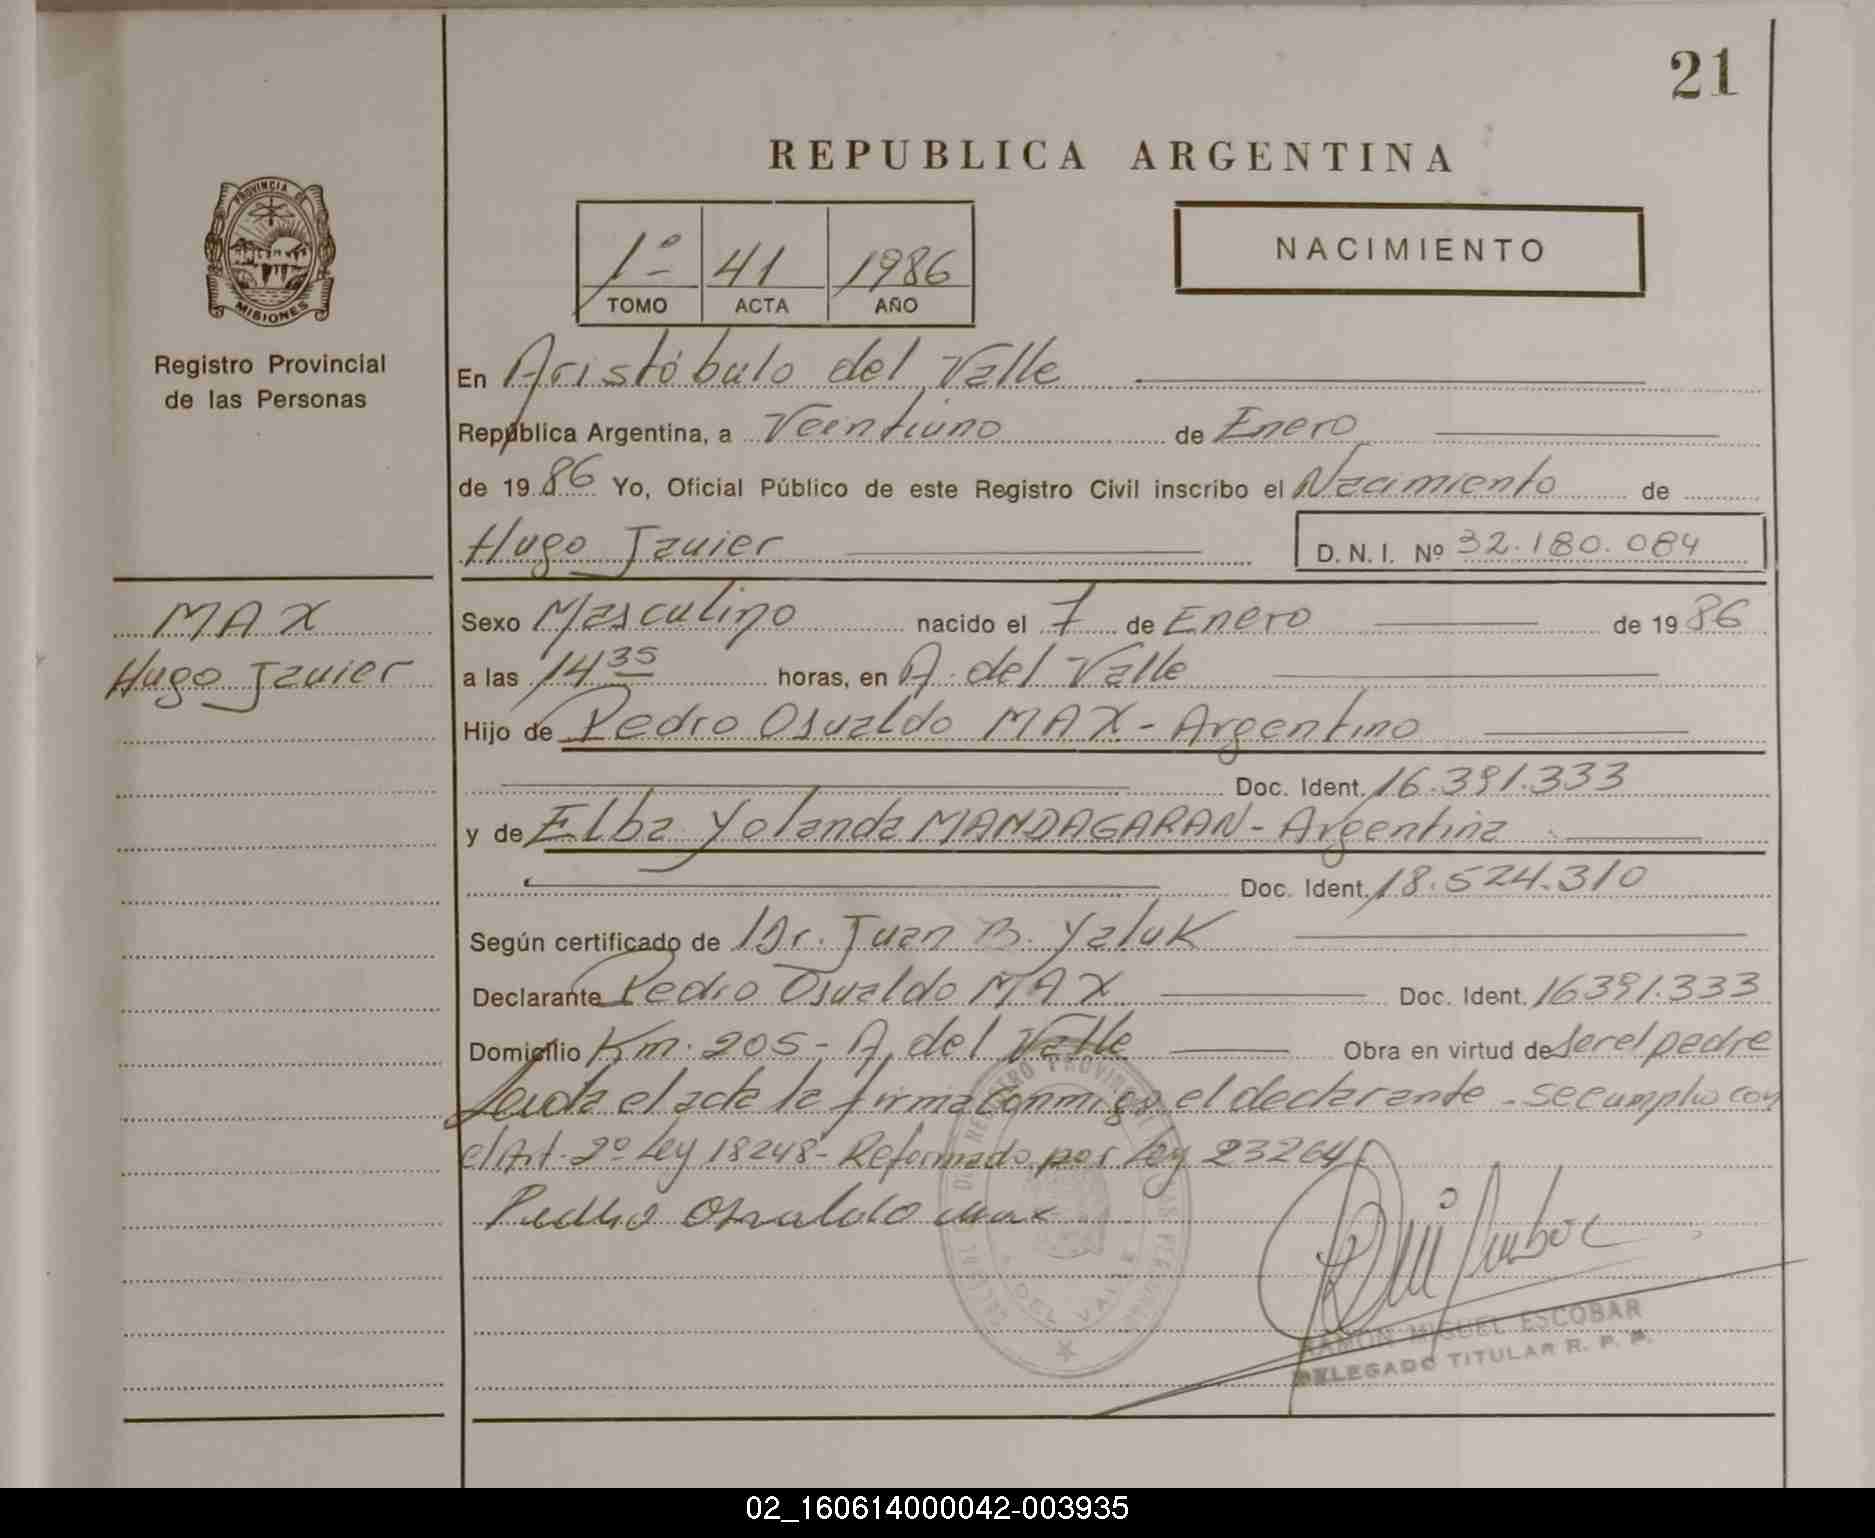 21
REPUBLICA ARGENTINA
PROVINCIA DE
MISIONES
Registro Provincial
de las Personas
1º 41 1986
TOMO ACTA AÑO
NACIMIENTO
En Aristóbulo del Valle
República Argentina, a Veintiuno de Enero
de 1986 Yo, Oficial Público de este Registro Civil inscribo el Nacimiento de
Hugo Javier D.N.I. Nº 32.180.084
MAX
Hugo Javier
Sexo Masculino nacido el 7 de Enero de 1986
a las 14 35 horas, en A. del Valle
Hijo de Pedro Osvaldo MAX - Argentino
Doc. Ident. 16.391.333
y de Elba Yolanda MANDAGARAN - Argentina
Doc. Ident. 18.524.310
Según certificado de Dr. Juan B. Yaluk
Declarante Pedro Osvaldo MAX Doc. Ident. 16391.333
Domicilio Km. 205 - A. del Valle Obra en virtud de ser el padre
Leida el acta la firma conmigo el declarante - se cumplio con
el Art. 2º Ley 18248 - Reformado por Ley 23264
Pedro Osvaldo Max
DEL VALLE
RAMON MIGUEL ESCOBAR
DELEGADO TITULAR R. P. P.
02_160614000042-003935